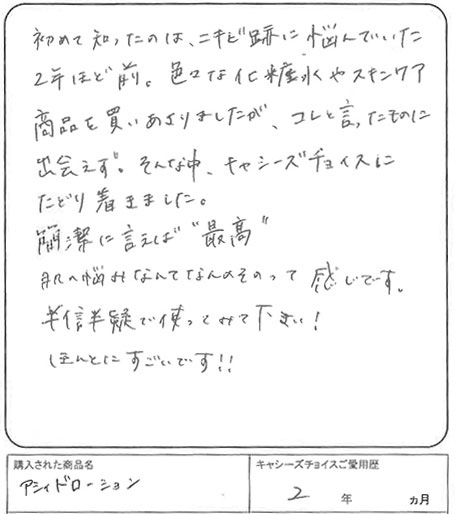 初めて知ったのは、ニキビ跡に悩んでいた
2年ほど前。色々な化粧水やスキンケア
商品を買いあさりましたが、コレと言ったものに
出会えず。そんな中、キャシーズチョイスに
たどり着きました。
簡潔に言えば"最高"
肌の悩みなんてなんのそのって感じです。
半信半疑で使ってみて下さい!
ほんとにすごいです!!
購入された商品名
アシィドローション
キャシーズチョイスご愛用歴
2 年 ヵ月